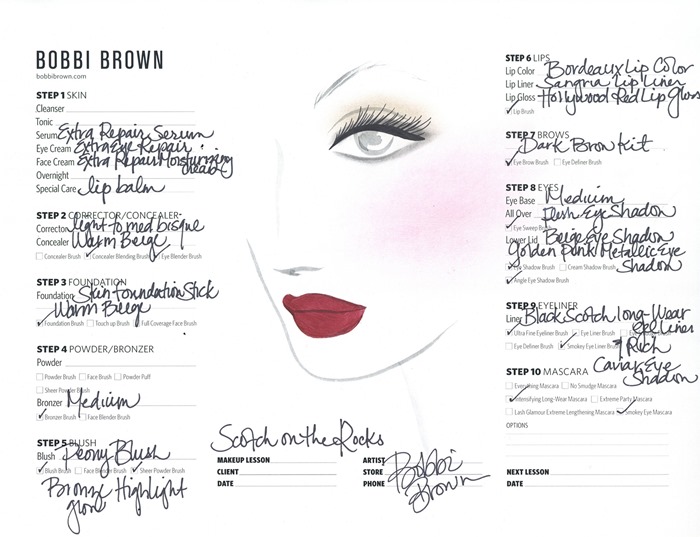 BOBBI BROWN
bobbibrown.com
STEP 1 SKIN
Cleanser
Tonic
Serum Extra Repair Serum
Eye Cream Extra Eye Repair
Face Cream Extra Repair Moisturizing
Overnight
Special Care lip balm
STEP 2 CORRECTOR/CONCEALER
Corrector light to med bisque
Concealer Warm Beige
Concealer Brush Concealer Blending Brush Eye Blender Brush
STEP 3 FOUNDATION
Foundation Skin Foundation Stick
Warm Beige
Foundation Brush Touch up Brush Full Coverage Face Brush
STEP 4 POWDER/BRONZER
Powder
Powder Brush Face Brush Powder Puff
Sheer Powder Brush
Bronzer Medium
Bronzer Brush Face Blender Brush
STEP 5 BLUSH
Blush Peony Blush
Blush Brush Face Blender Brush Sheer Powder Brush
Bronze Highlight
glow
Scotch on the Rocks
MAKEUP LESSON
CLIENT
DATE
ARTIST Bobbi
STORE Brown
PHONE
STEP 6 LIPS
Lip Color Bordeaux Lip Color
Lip Liner Sangria Lip Liner
Lip Gloss Hollywood Red Lip Gloss
Lip Brush
STEP 7 BROWS
Dark Brow Kit
Eye Brow Brush Eye Definer Brush
STEP 8 EYES
Eye Base Medium
All Over Flesh Eye Shadow
Eye Sweep
Lower Lid Beige Eye Shadow
Golden Pink Metallic Eye
Shadow
Eye Shadow Brush Cream Shadow
Angle Eye Shadow Brush
STEP 9 EYELINER
Liner Black Scotch Long-Wear
Gel Liner
Ultra Fine Eyeliner Brush Eye Liner Brush
Eye Definer Brush Smokey Eye Liner
Rich
Caviar Eye
Shadow
STEP 10 MASCARA
Everything Mascara No Smudge Mascara
Intensifying Long-Wear Mascara Extreme Party Mascara
Lash Glamour Extreme Lengthening Mascara Smokey Eye Mascara
OPTIONS
NEXT LESSON
DATE